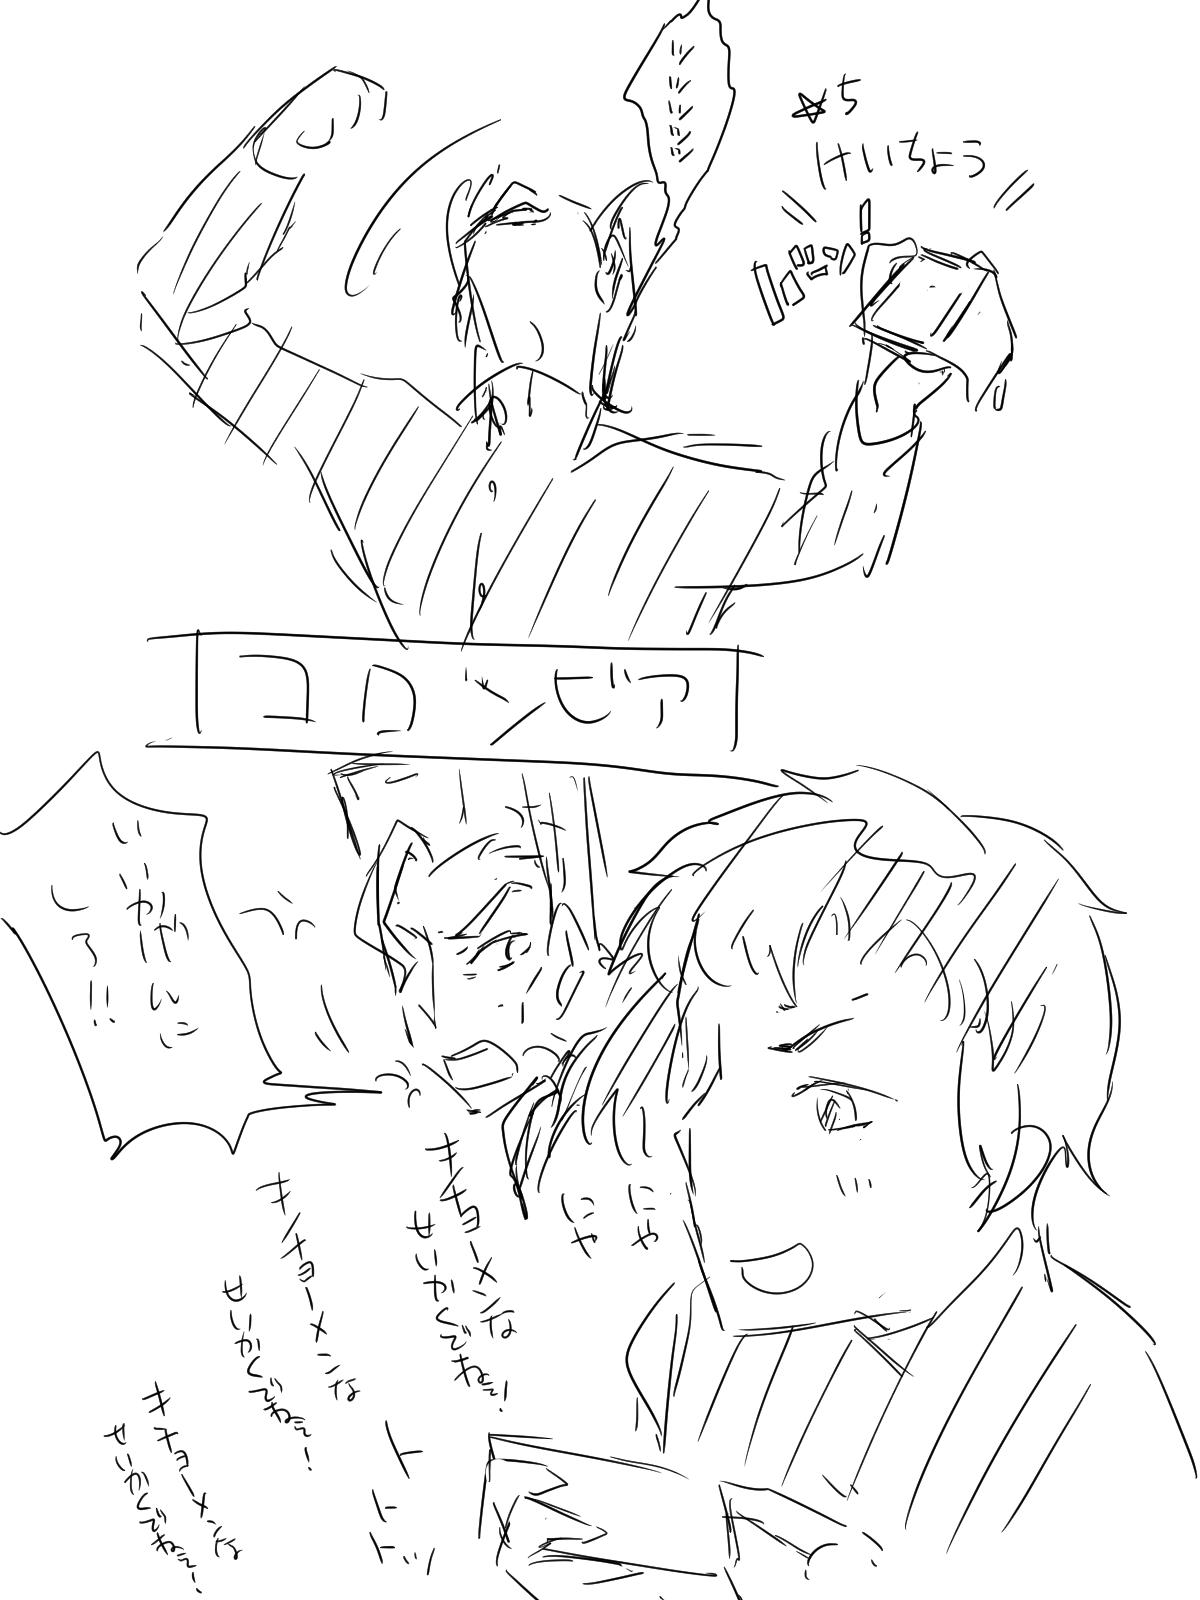 ☆5
けいちょう
バーン!
コロンビア
いいかげんに
しろ!!
にや
にや
キチョーメンな
せいかくでねぇ!
キチョーメンな
せいかくでねぇ!
キチョーメンな
せいかくでねぇ!
ト
ト
トッ